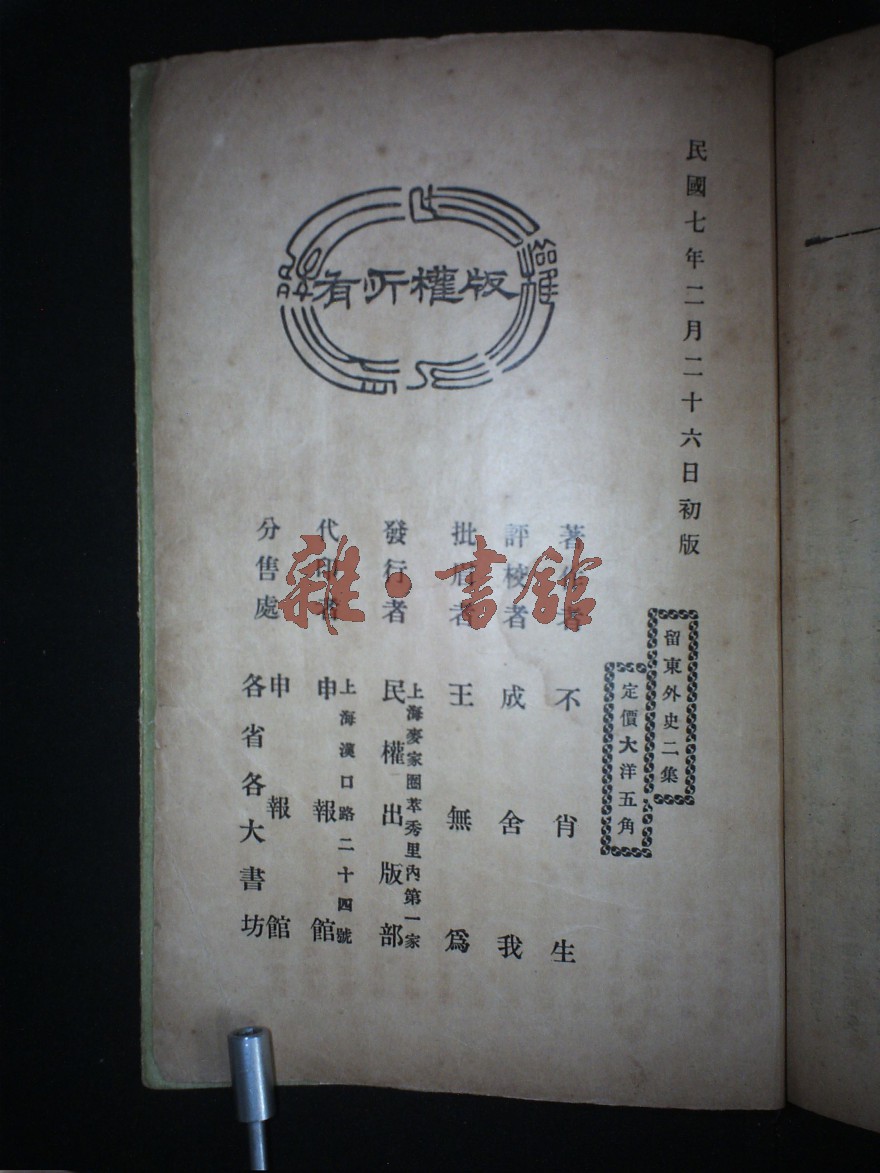 民國七年二月二十六日初版
留東外史二集
定價大洋五角
著作者 不肖生
評校者 成舍我
批眉者 王無爲
發行者 上海麥家圈萃秀里內第一家
民權出版部
代印者 上海漢口路二十四號
申報館
分售處 申報館
各省各大書坊
版權所有
雜·書館